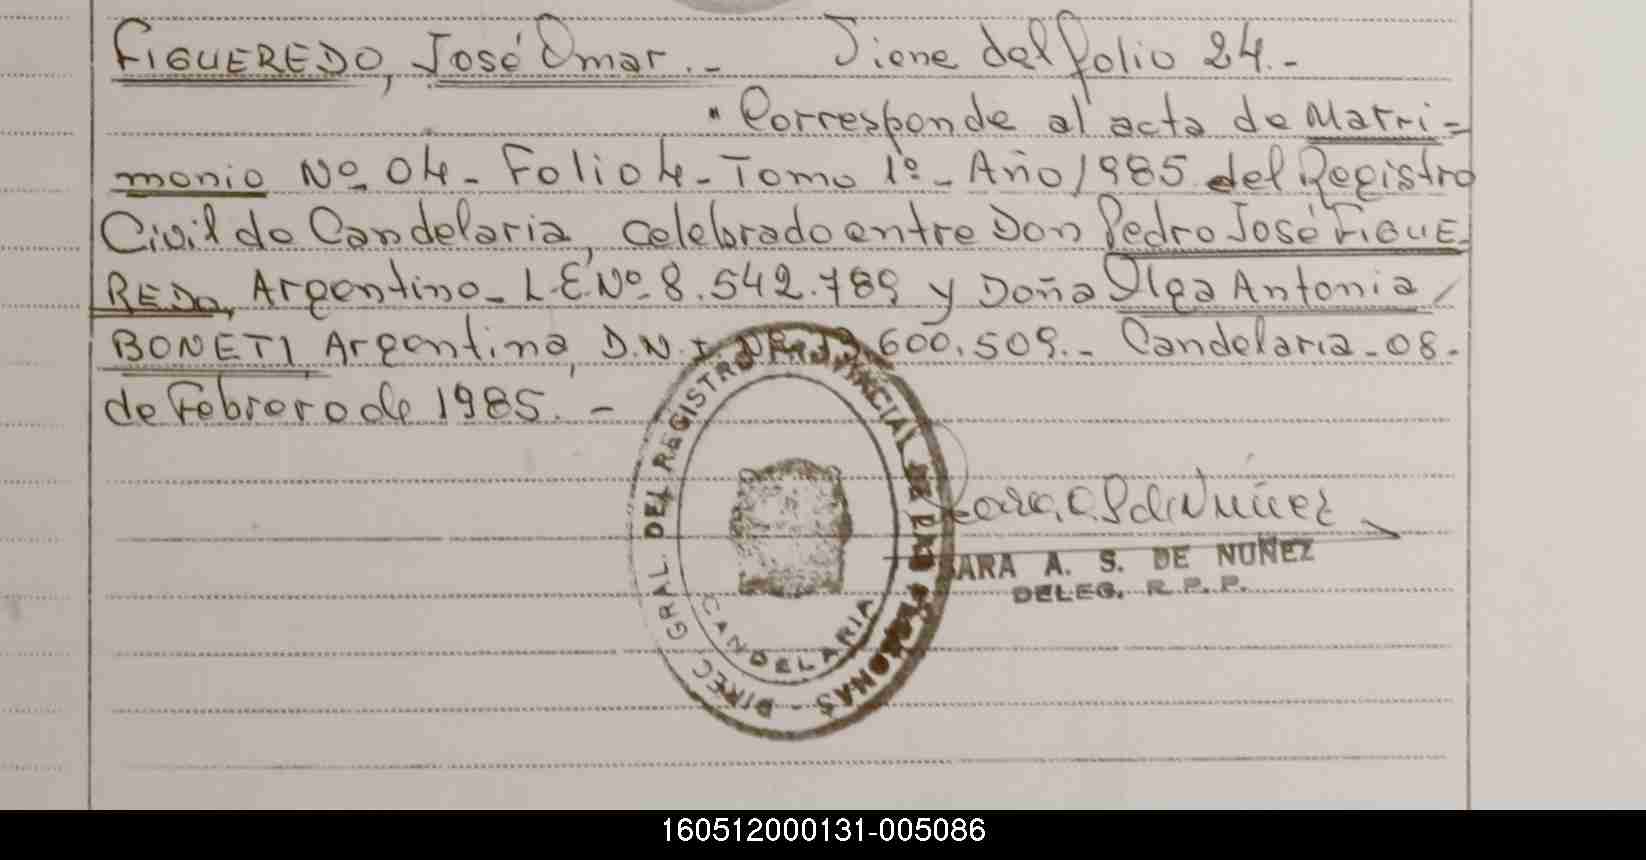 FIGUEREDO, José Omar.- Viene del folio 24.-
"Corresponde al acta de Matri=
monio Nº 04- Folio 4- Tomo 1º- Año 1985 del Registro
Civil de Candelaria, celebrado entre Don Pedro José FIGUE
REDO, Argentino- L.E.Nº 8.542.789 y Doña Olga Antonia
BONETI, Argentina, D.N.I. Nº 600.509.- Candelaria- 08-
de Febrero de 1985.-
DIREC. GRAL. DEL REGISTRO PROVINCIAL DE LAS PERSONAS -
CANDELARIA
SARA A. S. DE NUÑEZ
DELEG. R.P.P.
160512000131-005086